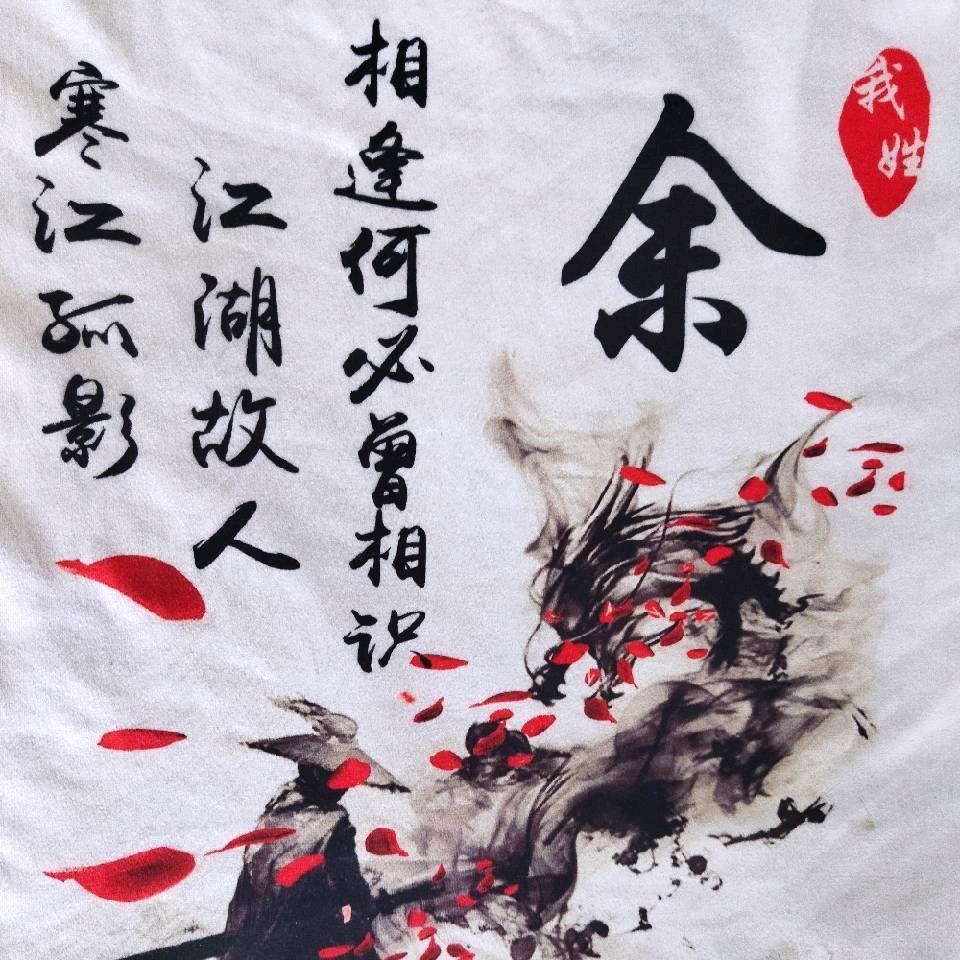 我姓
余
相逢何必曾相识
江湖故人
寒江孤影